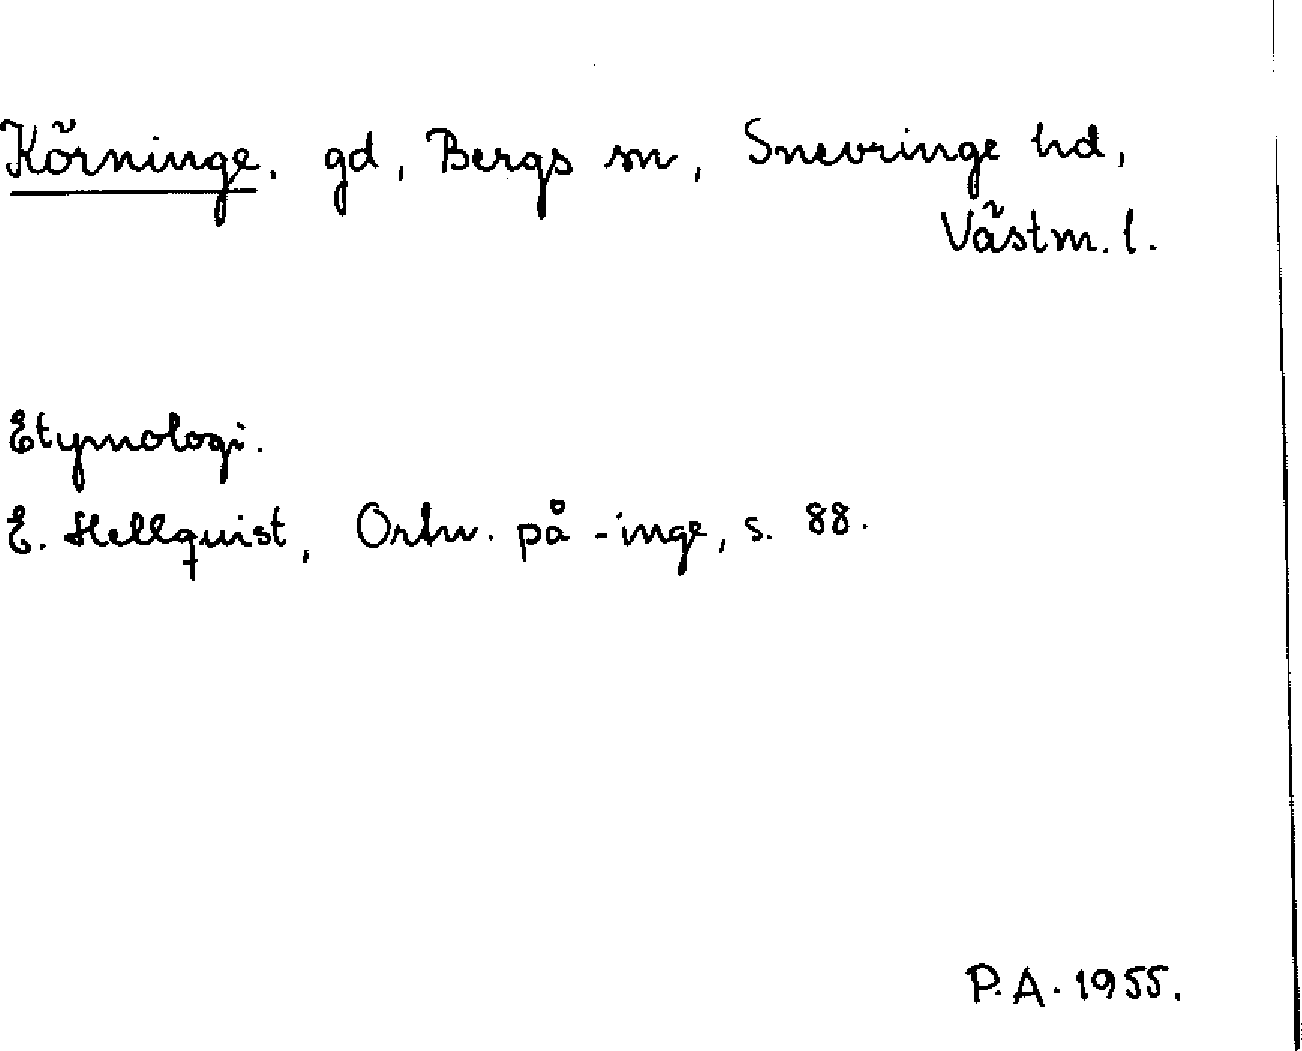 Körninge. gd, Bergs sn, Snevringe hd,
Västm. l.
Etymologi.
E. Hellquist, Ortn. på -inge, s. 88.
P.A. 1955.